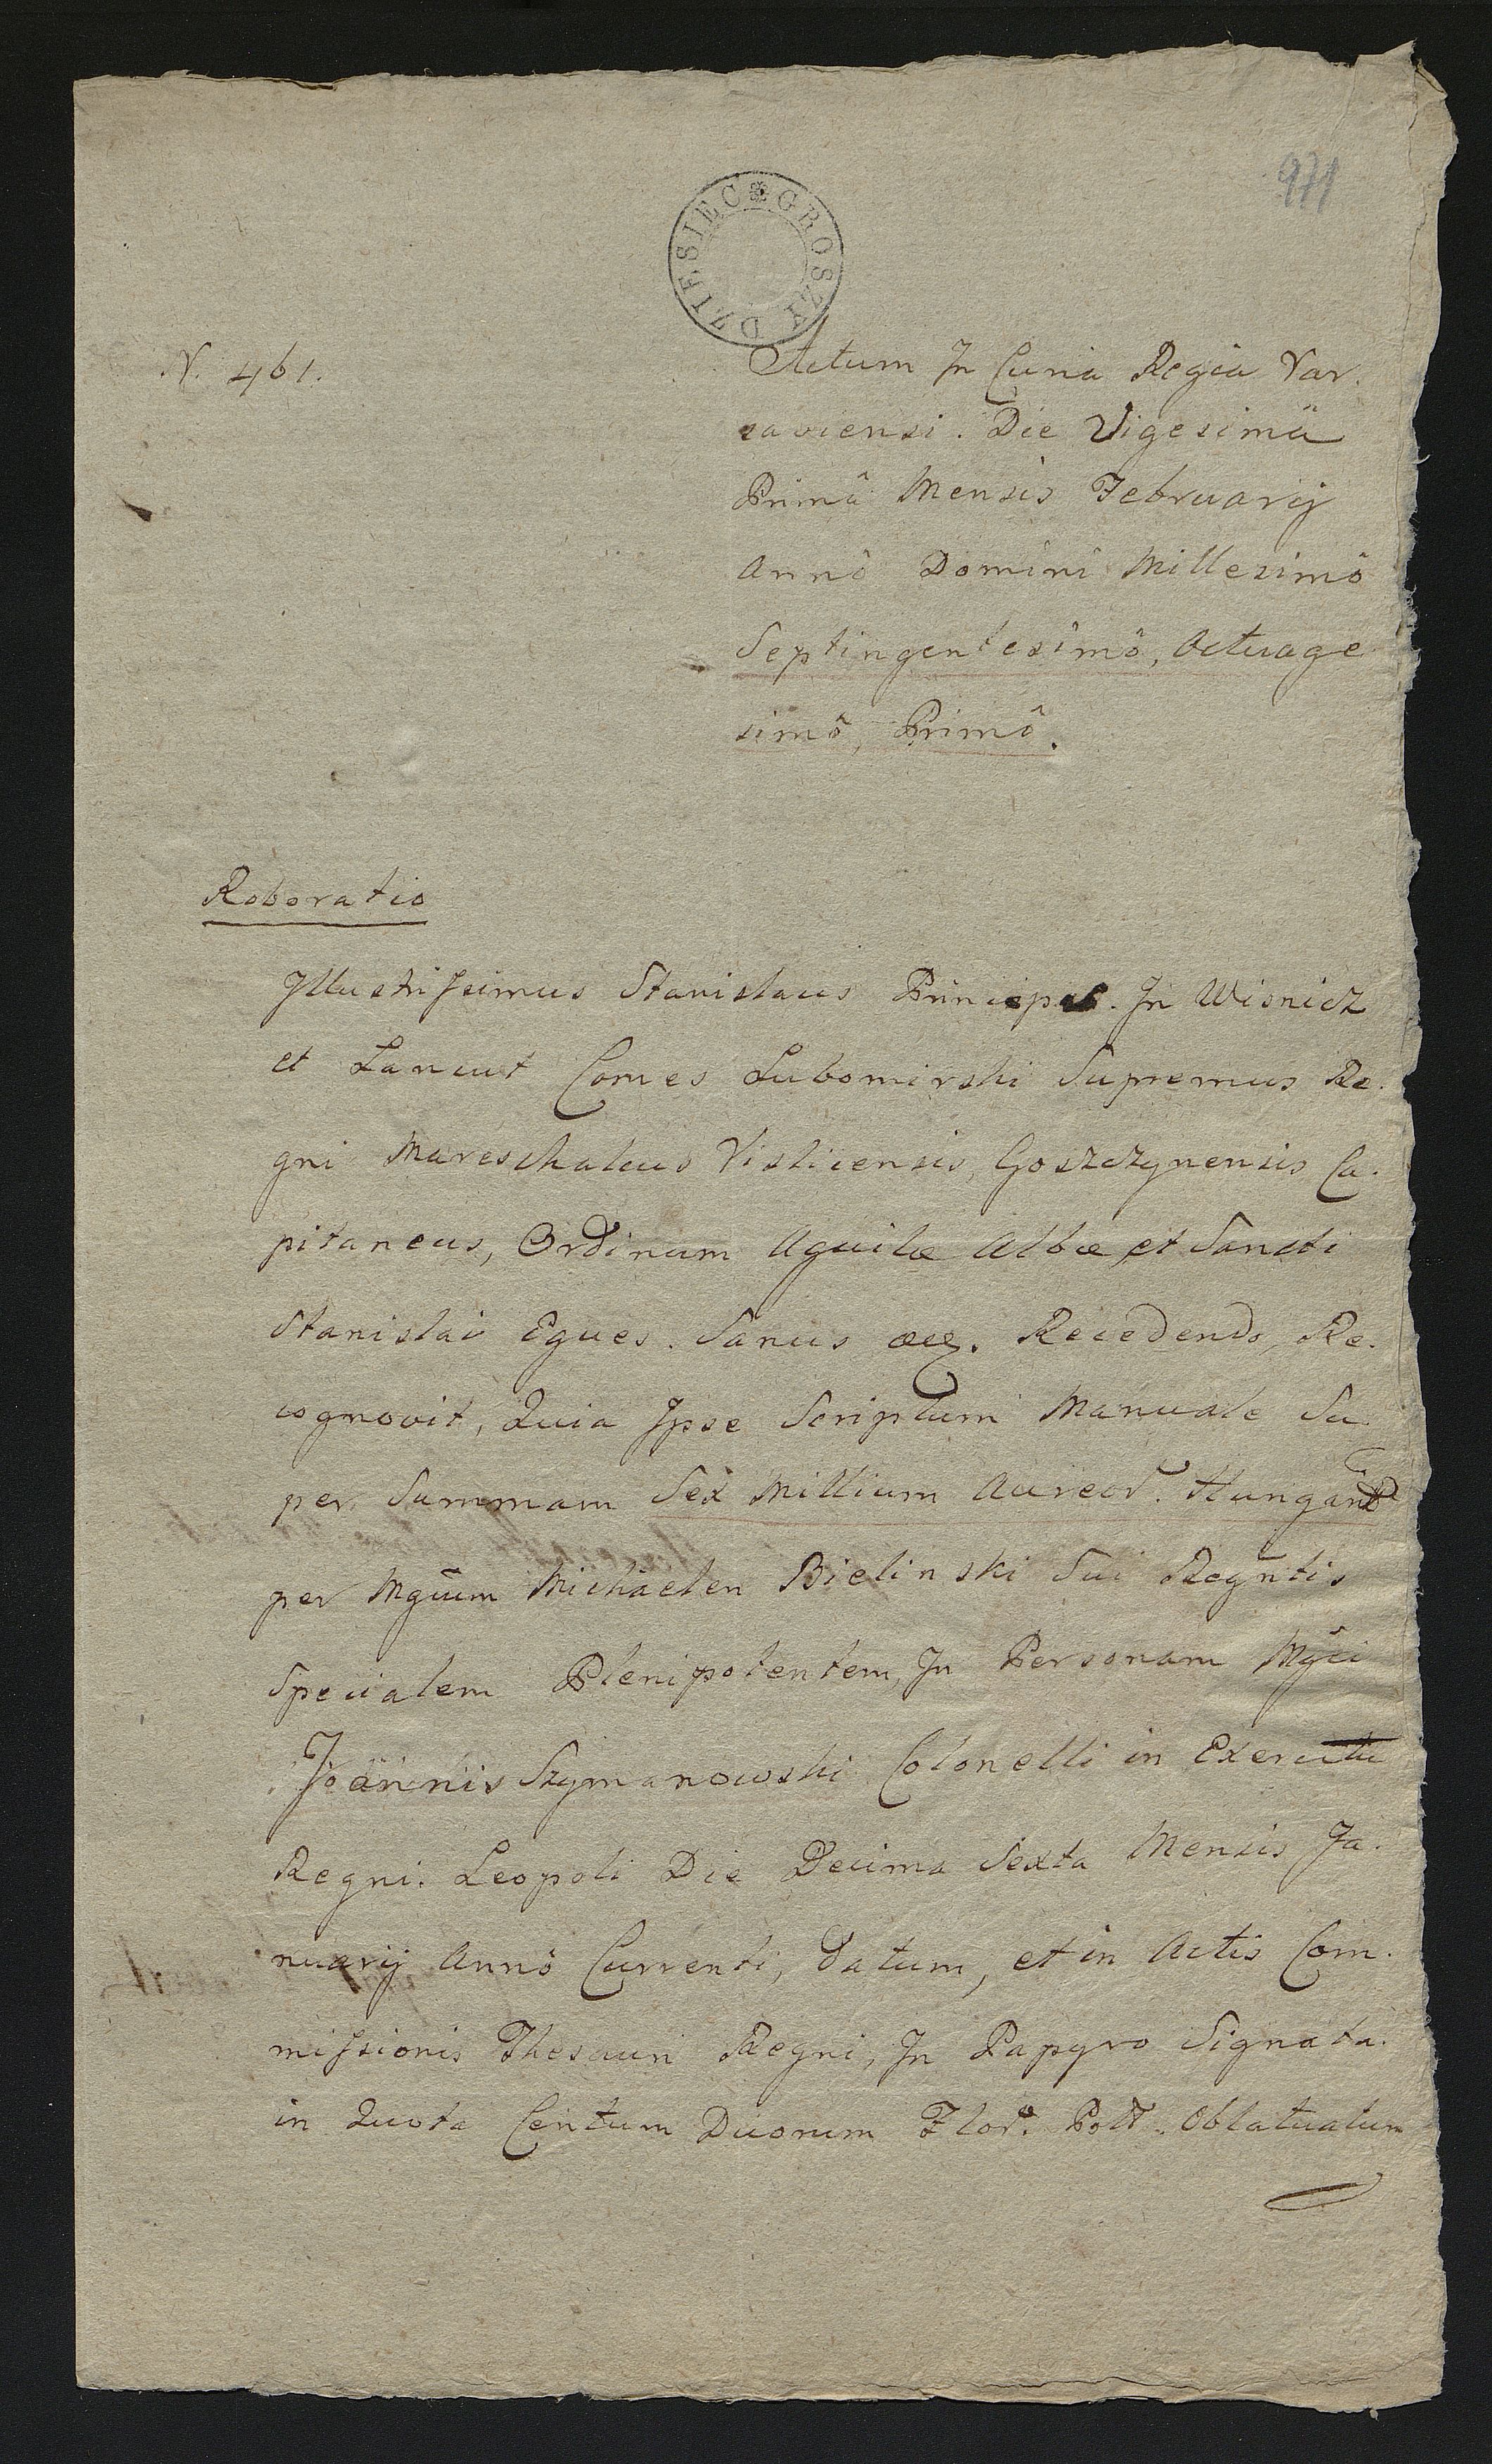 971
DZIESIĘC GROSZY
N. 461.
Actum In Curia Regia Var.
saviensi. Die Vigesimâ
Primâ Mensis Februarij
Annô Domini Millesimô
Septingentesimô, Octuage
simô, Primô.
Roboratio
Illustrissimus Stanislaus Princeps. In Wisnicz
et Lancut Comes Lubomirski Supremus Re.
gni Mareschalcus Visliciensis, Goszczynensis Ca.
pitaneus, Ordinum Aquilæ Albæ et Sancti
Stanislai Eques. Sanus Recedendo, Re.
cognovit, Quia Ipse Scriptum Manuale Su.
per Summam Sex Millium Aureor. Hungar
per Mgcum Michaelen Bielinski Sui Regntis
Specialem Plenipotentem, In Personam Mgci
Joannis Szymanowski Colonelli in Exercitu
Regni. Leopoli Die Decima Sexta Mensis Ja.
nuarij Annô Currenti, Datum, et in Actis Com.
missionis Thesauri Regni, In Papyro Signata.
in Quota Centum Duorum Flor. Poll. Oblatuatum